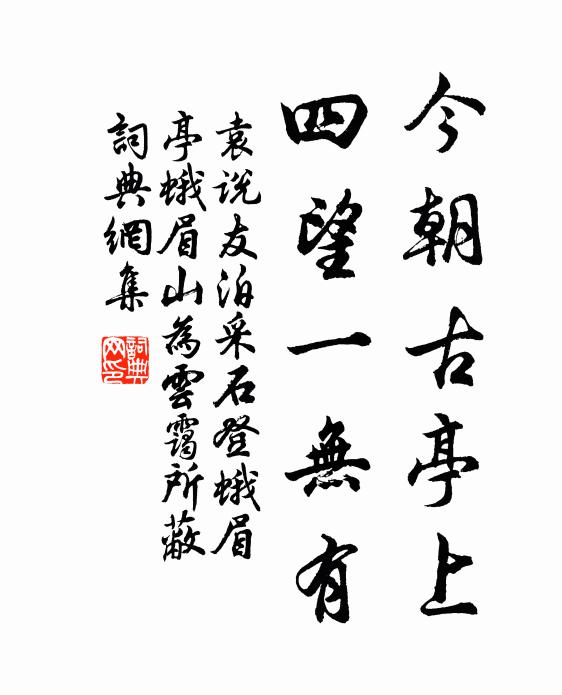 今朝古亭上
四望一無有
袁说友泊采石登蛾眉
亭蛾眉山為雲靄所蔽
詞典網集
詞典网印